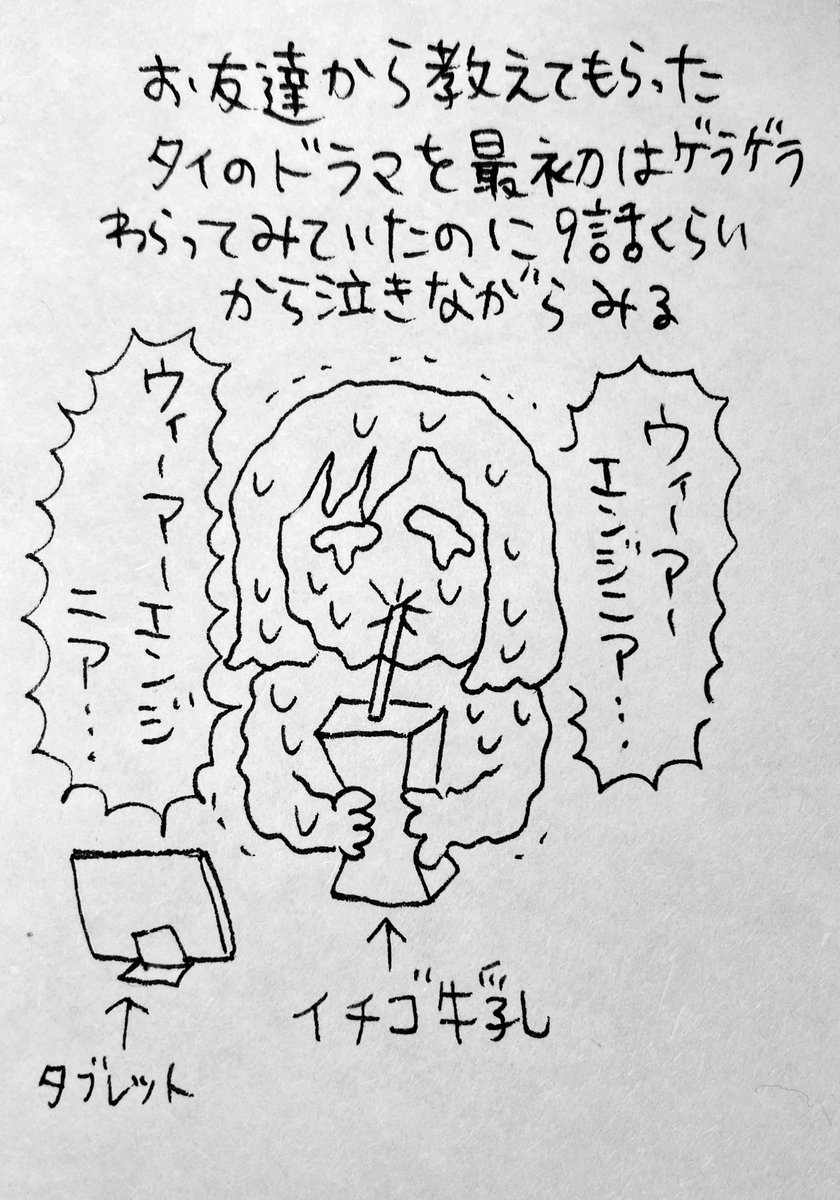 お友達から教えてもらった
タイのドラマを最初はゲラゲラ
わらってみていたのに9話くらい
から泣きながらみる
ウィーアー
エンジニア…
ウィーアーエンジ
ニア…
イチゴ牛乳
タブレット